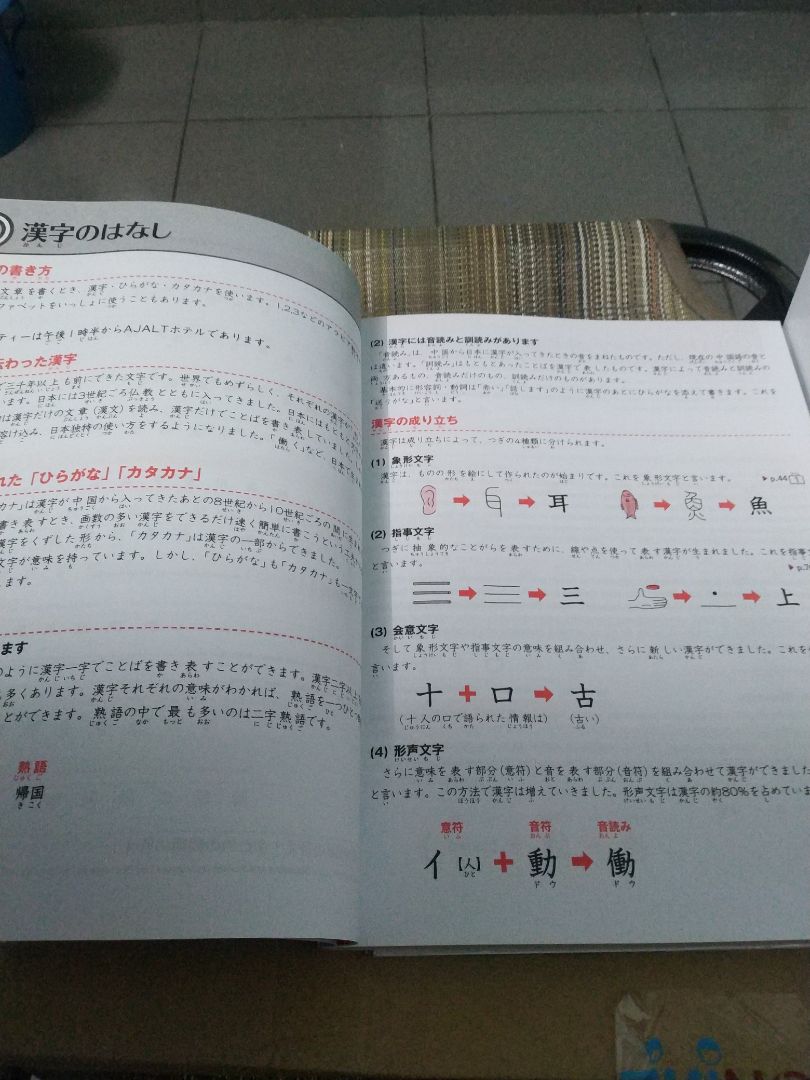 漢字のはなし
の書き方
文章を書くとき、漢字・ひらがな・カタカナを使います。1,2,3などの
ファベットをいっしょに使うこともあります。
ティーは午後1時半からAJALTホテルであります。
伝わった漢字
三千年以上も前にできた文字です。世界でもめずらしく、それぞれの漢字が
ます。日本には3世紀ごろ仏教とともに入ってきました。日本にはもともと
は漢字だけの文章(漢文)を読み、漢字だけでことばを書き表していました
溶け込み、日本独特の使い方をするようになりました。「働く」など、日本で
れた「ひらがな」「カタカナ」
カナ」は漢字が中国から入ってきたあとの8世紀から10世紀ごろの間に
書き表すとき、画数の多い漢字をできるだけ速く簡単に書こうという
漢字をくずした形から、「カタカナ」は漢字の一部からできました。
文字が意味を持っています。しかし、「ひらがな」も「カタカナ」も一文字
ます。
ます
のように漢字一字でことばを書き表すことができます。漢字二字以上
も多くあります。漢字それぞれの意味がわかれば、熟語を一つひとつ
とができます。熟語の中で最も多いのは二字熟語です。
熟語
帰国
きこく
(2) 漢字には音読みと訓読みがあります
「音読み」は、中国から日本に漢字が入ってきたときの音をまねたものです。ただし、現在の中国語の音と
は違います。「訓読み」はもともとあったことばを漢字で表したものです。漢字によって音読みと訓読みの
両方あるもの、音読みだけのもの、訓読みだけのものがあります。
基本的に形容詞・動詞は「赤い」「話します」のように漢字のあとにひらがなを添えて書きます。これを
「送りがな」と言います。
漢字の成り立ち
漢字は成り立ちによって、つぎの4種類に分けられます。
(1) 象形文字
漢字は、ものの形を絵にして作られたのが始まりです。これを象形文字と言います。 ▶p.44 1
耳 魚
(2) 指事文字
つぎに抽象的なことがらを表すために、線や点を使って表す漢字が生まれました。これを指事
と言います。
三 上
(3) 会意文字
そして象形文字や指事文字の意味を組み合わせ、さらに新しい漢字ができました。これを
言います。
十 + 口 → 古
(十人の口で語られた情報は) (古い)
(4) 形声文字
さらに意味を表す部分(意符)と音を表す部分(音符)を組み合わせて漢字ができました
と言います。この方法で漢字は増えていきました。形声文字は漢字の約80%を占めていま
意符 音符 音読み
イ【人】 + 動 → 働
ひと ドウ ドウ